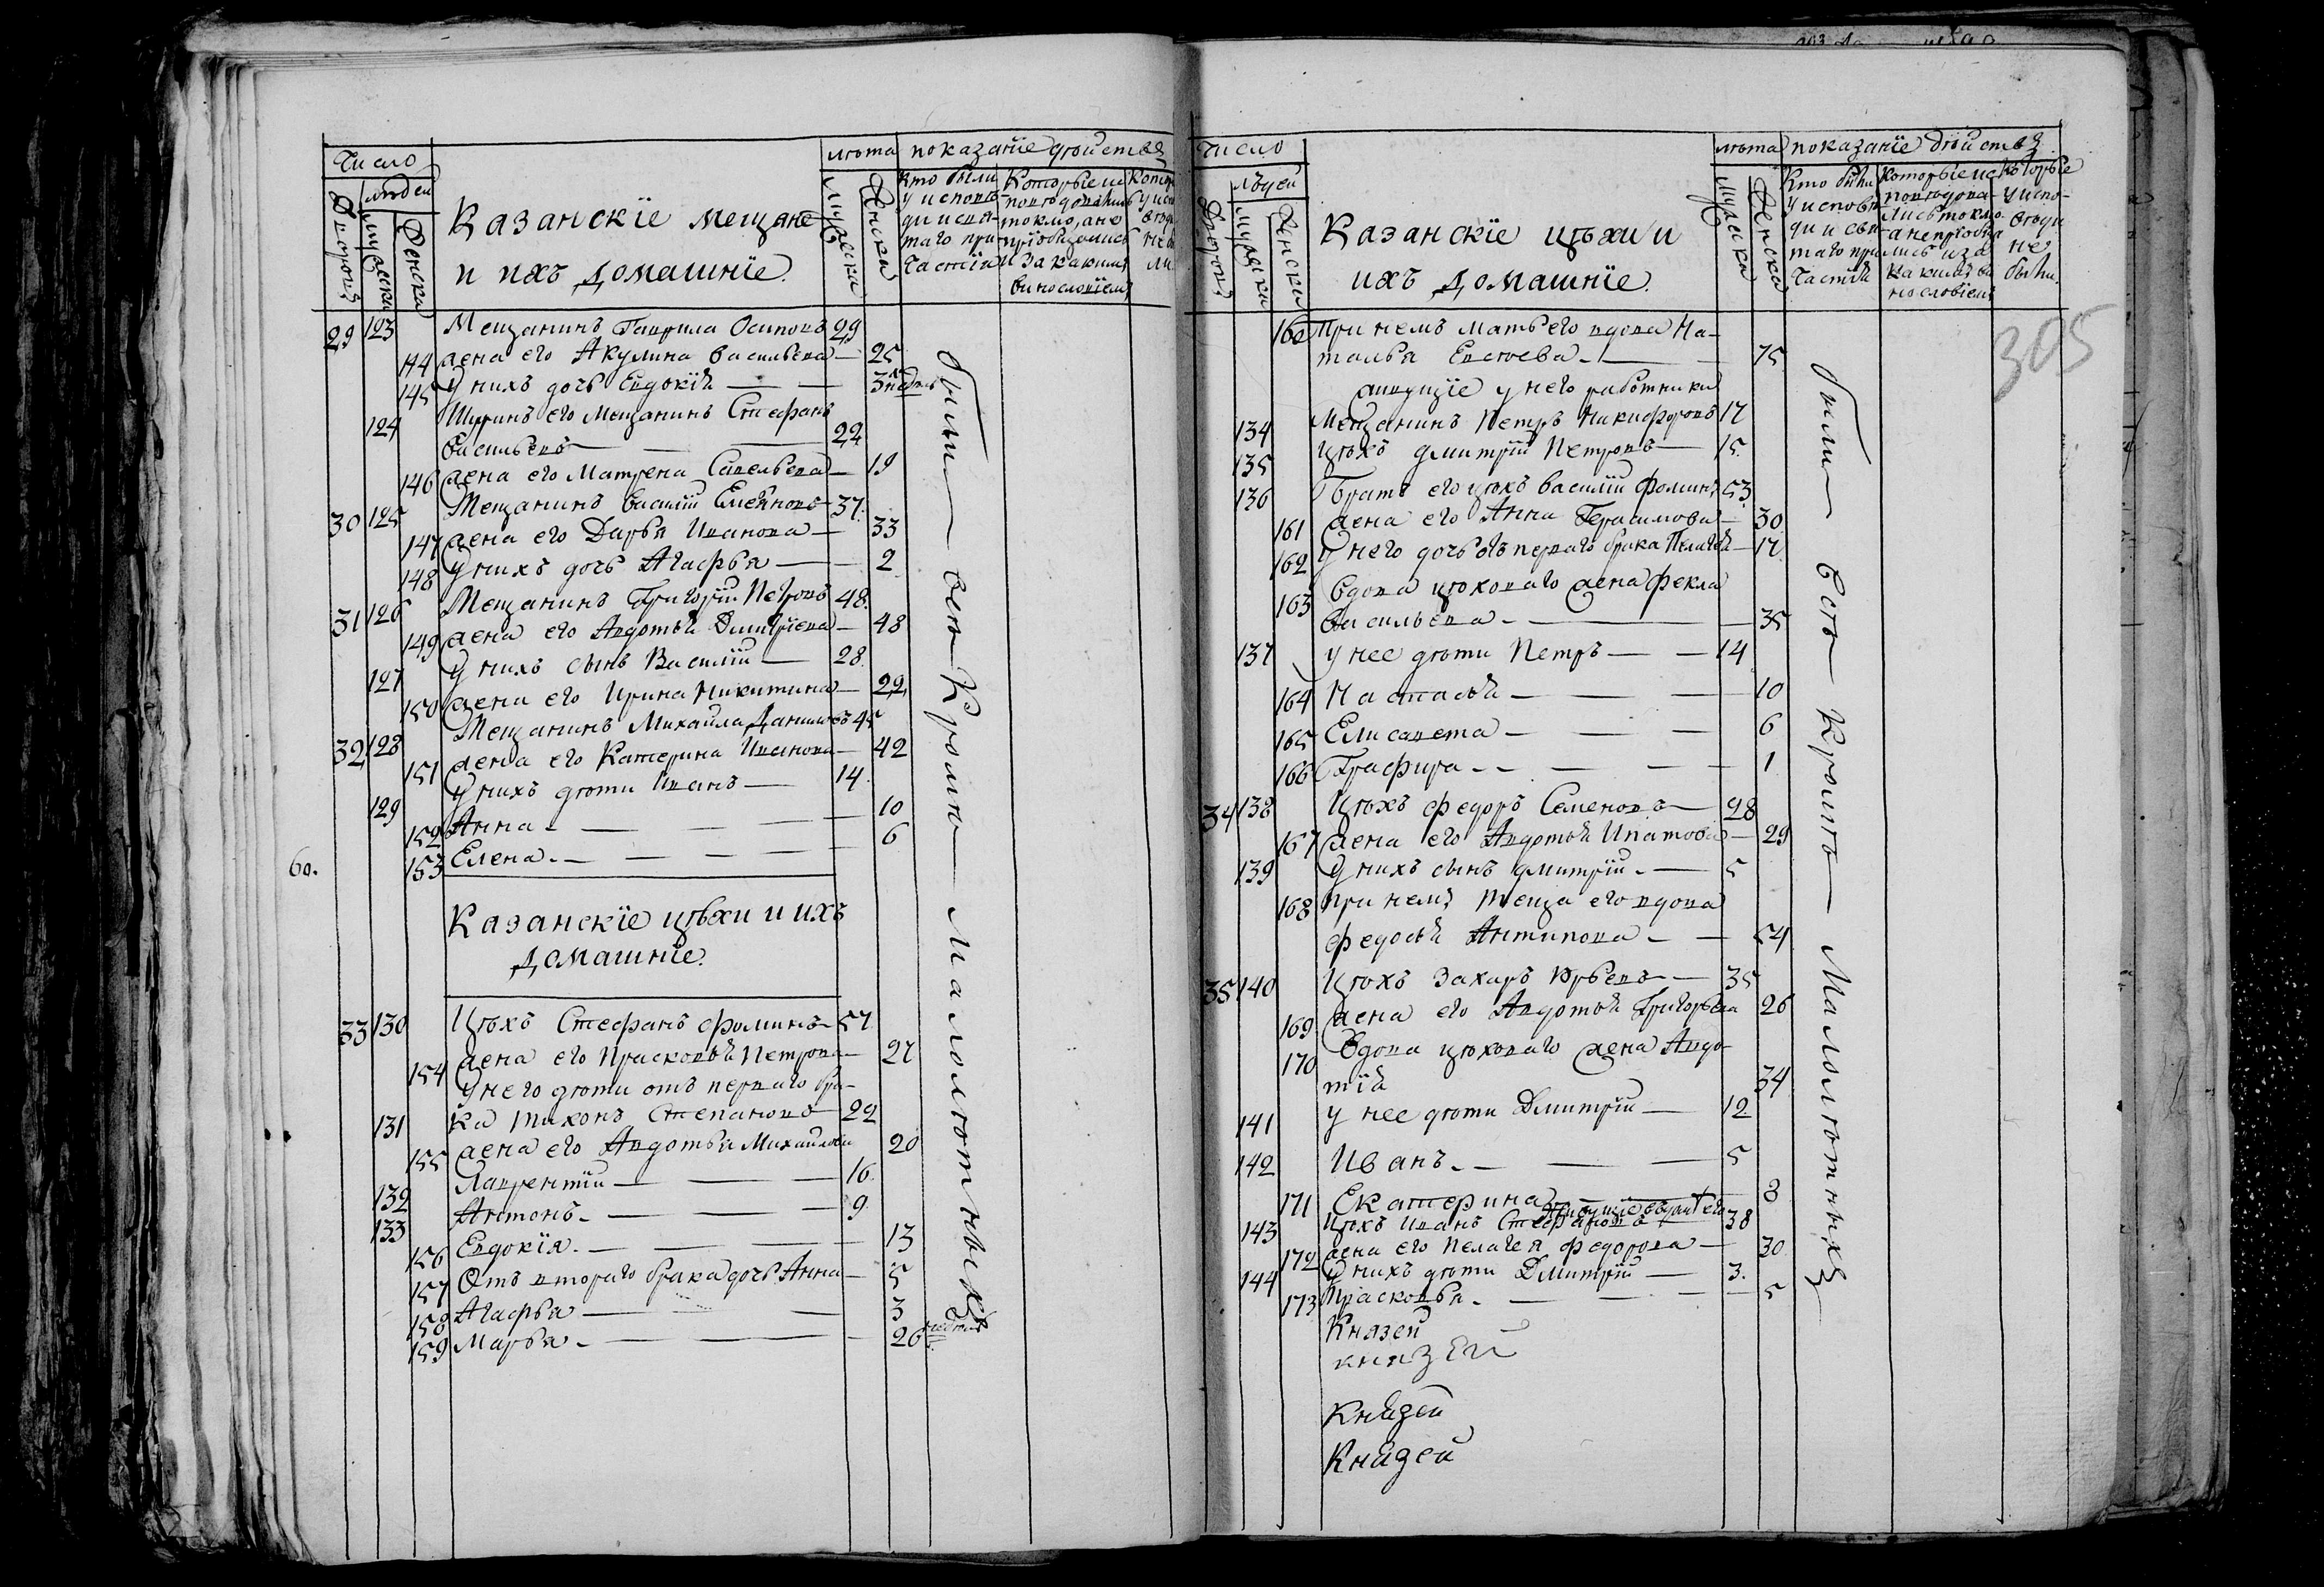 число
людей
дворовъ
мужеска
женска
Казанскїе мещане
и ихъ домашнїе.
лѣта
мужеска
женска
показанїе дѣйствъ
кто были
у исповѣ-
ди и свя-
таго при-
частїя
Которые ис
повѣдовались
токмо, а не
прїобщались
и за какимъ
винословїемъ
29 123 Мещанинъ Гаврила Осиповъ 29
144 жена его Акулина Васильева — 25
145 у нихъ дочь Евдокїя — — 3 недель
124 Шуринъ его Мещанинъ Стефанъ
Васильевъ — — 22
146 жена его Матрена Савельева — 19
30 125 Мещанинъ Василїй Емельяновъ 37.
147 жена его Дарья Иванова — 33
148 у нихъ дочь Агафья — — 2
31 126 Мещанинъ Григорїй Петровъ 48.
149 жена его Авдотья Дмитрїева — 48
127 у нихъ сынъ Василїй — 28.
150 жена его Ирина Никитина — 22
32 128 Мещанинъ Михаила Даниловъ 45
151 жена его Катерина Иванова — 42
129 у нихъ дѣти Иванъ — 14.
152 Анна. — — — — 10
60. 153 Елена. — — — — — 6
Казанскїе цѣхи и ихъ
домашнїе.
33 130 Цѣхъ Стефанъ Фоминъ — 57
154 жена его Прасковья Петрова — 27
у него дѣти отъ перваго бра-
131 ка Тихонъ Степановъ — 22
155 жена его Авдотья Михайлова 20
132 Лаврентїй — — — 16.
133 Антонъ. — — — 9.
156 Евдокїя. — — — — 13
157 Отъ втораго брака дочь Анна — 5
158 Агафья — — — 3
159 Марья. — — — — 26 недель
были всѣ Кромѣ Малолѣтныхъ
305
число
людей
дворовъ
мужеска
женска
Казанскїе цѣхи и
ихъ домашнїе.
лѣта
мужеска
женска
показанїе дѣйствъ.
Кто были
у исповѣ-
ди и свя-
таго при-
частїя
которые ис
повѣдова-
лись токмо
а не прїобща
лись и за
какимъ ви
нословїемъ
которые
у испо-
вѣди
не
были.
160 При немъ мать его вдова На-
талья Евсѣева. — — 75
живущїе у него работники
134 Мещанинъ Петръ Никифоровъ 17
135 Цѣхъ Дмитрїй Петровъ — 15.
136 Братъ его цѣхъ Василїй Фоминъ 53.
161 жена его Анна Герасимова — 30
162 у него дочь отъ перваго брака Пелагея — 17.
163 Вдова цѣховаго жена Фекла
Васильева. — — — 35
137 у нее дѣти Петръ — — 14
164 Наталья — — — 10
165 Елисавета — — — 6
166 Графира. — — — — 1
34 138 Цѣхъ Федоръ Семеновъ — 28
167 жена его Авдотья Ипатова — 29
139 у нихъ сынъ Дмитрїй. — 5
168 При немъ теща его вдова
Федосья Антипова — — 54
35 140 Цѣхъ Захаръ Юрьевъ — 35
169 жена его Авдотья Григорьева 26
170 Вдова цѣховаго жена Авдо-
тїя 34
141 у нее дѣти Дмитрїй — 12
142 Иванъ. — — — 5
171 Екатерина — — 8
143 Цѣхъ Иванъ Стефановъ 38
172 жена его Пелагея Федорова — 30
144 у нихъ дѣти Дмитрїй — 3.
173 Прасковья. — — — — 5
Князей
князей
Князей
Князей
были всѣ Кромѣ Малолѣтныхъ